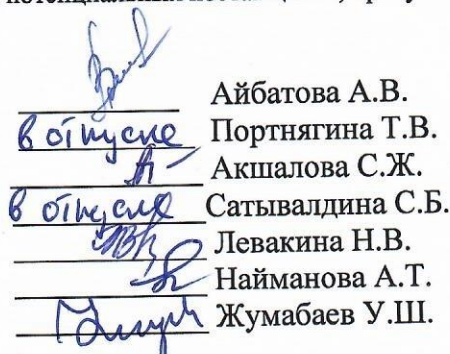 Айбатова А.В.
в отпуске Портнягина Т.В.
Акшалова С.Ж.
в отпуске Сатывалдина С.Б.
Левакина Н.В.
Найманова А.Т.
Жумабаев У.Ш.